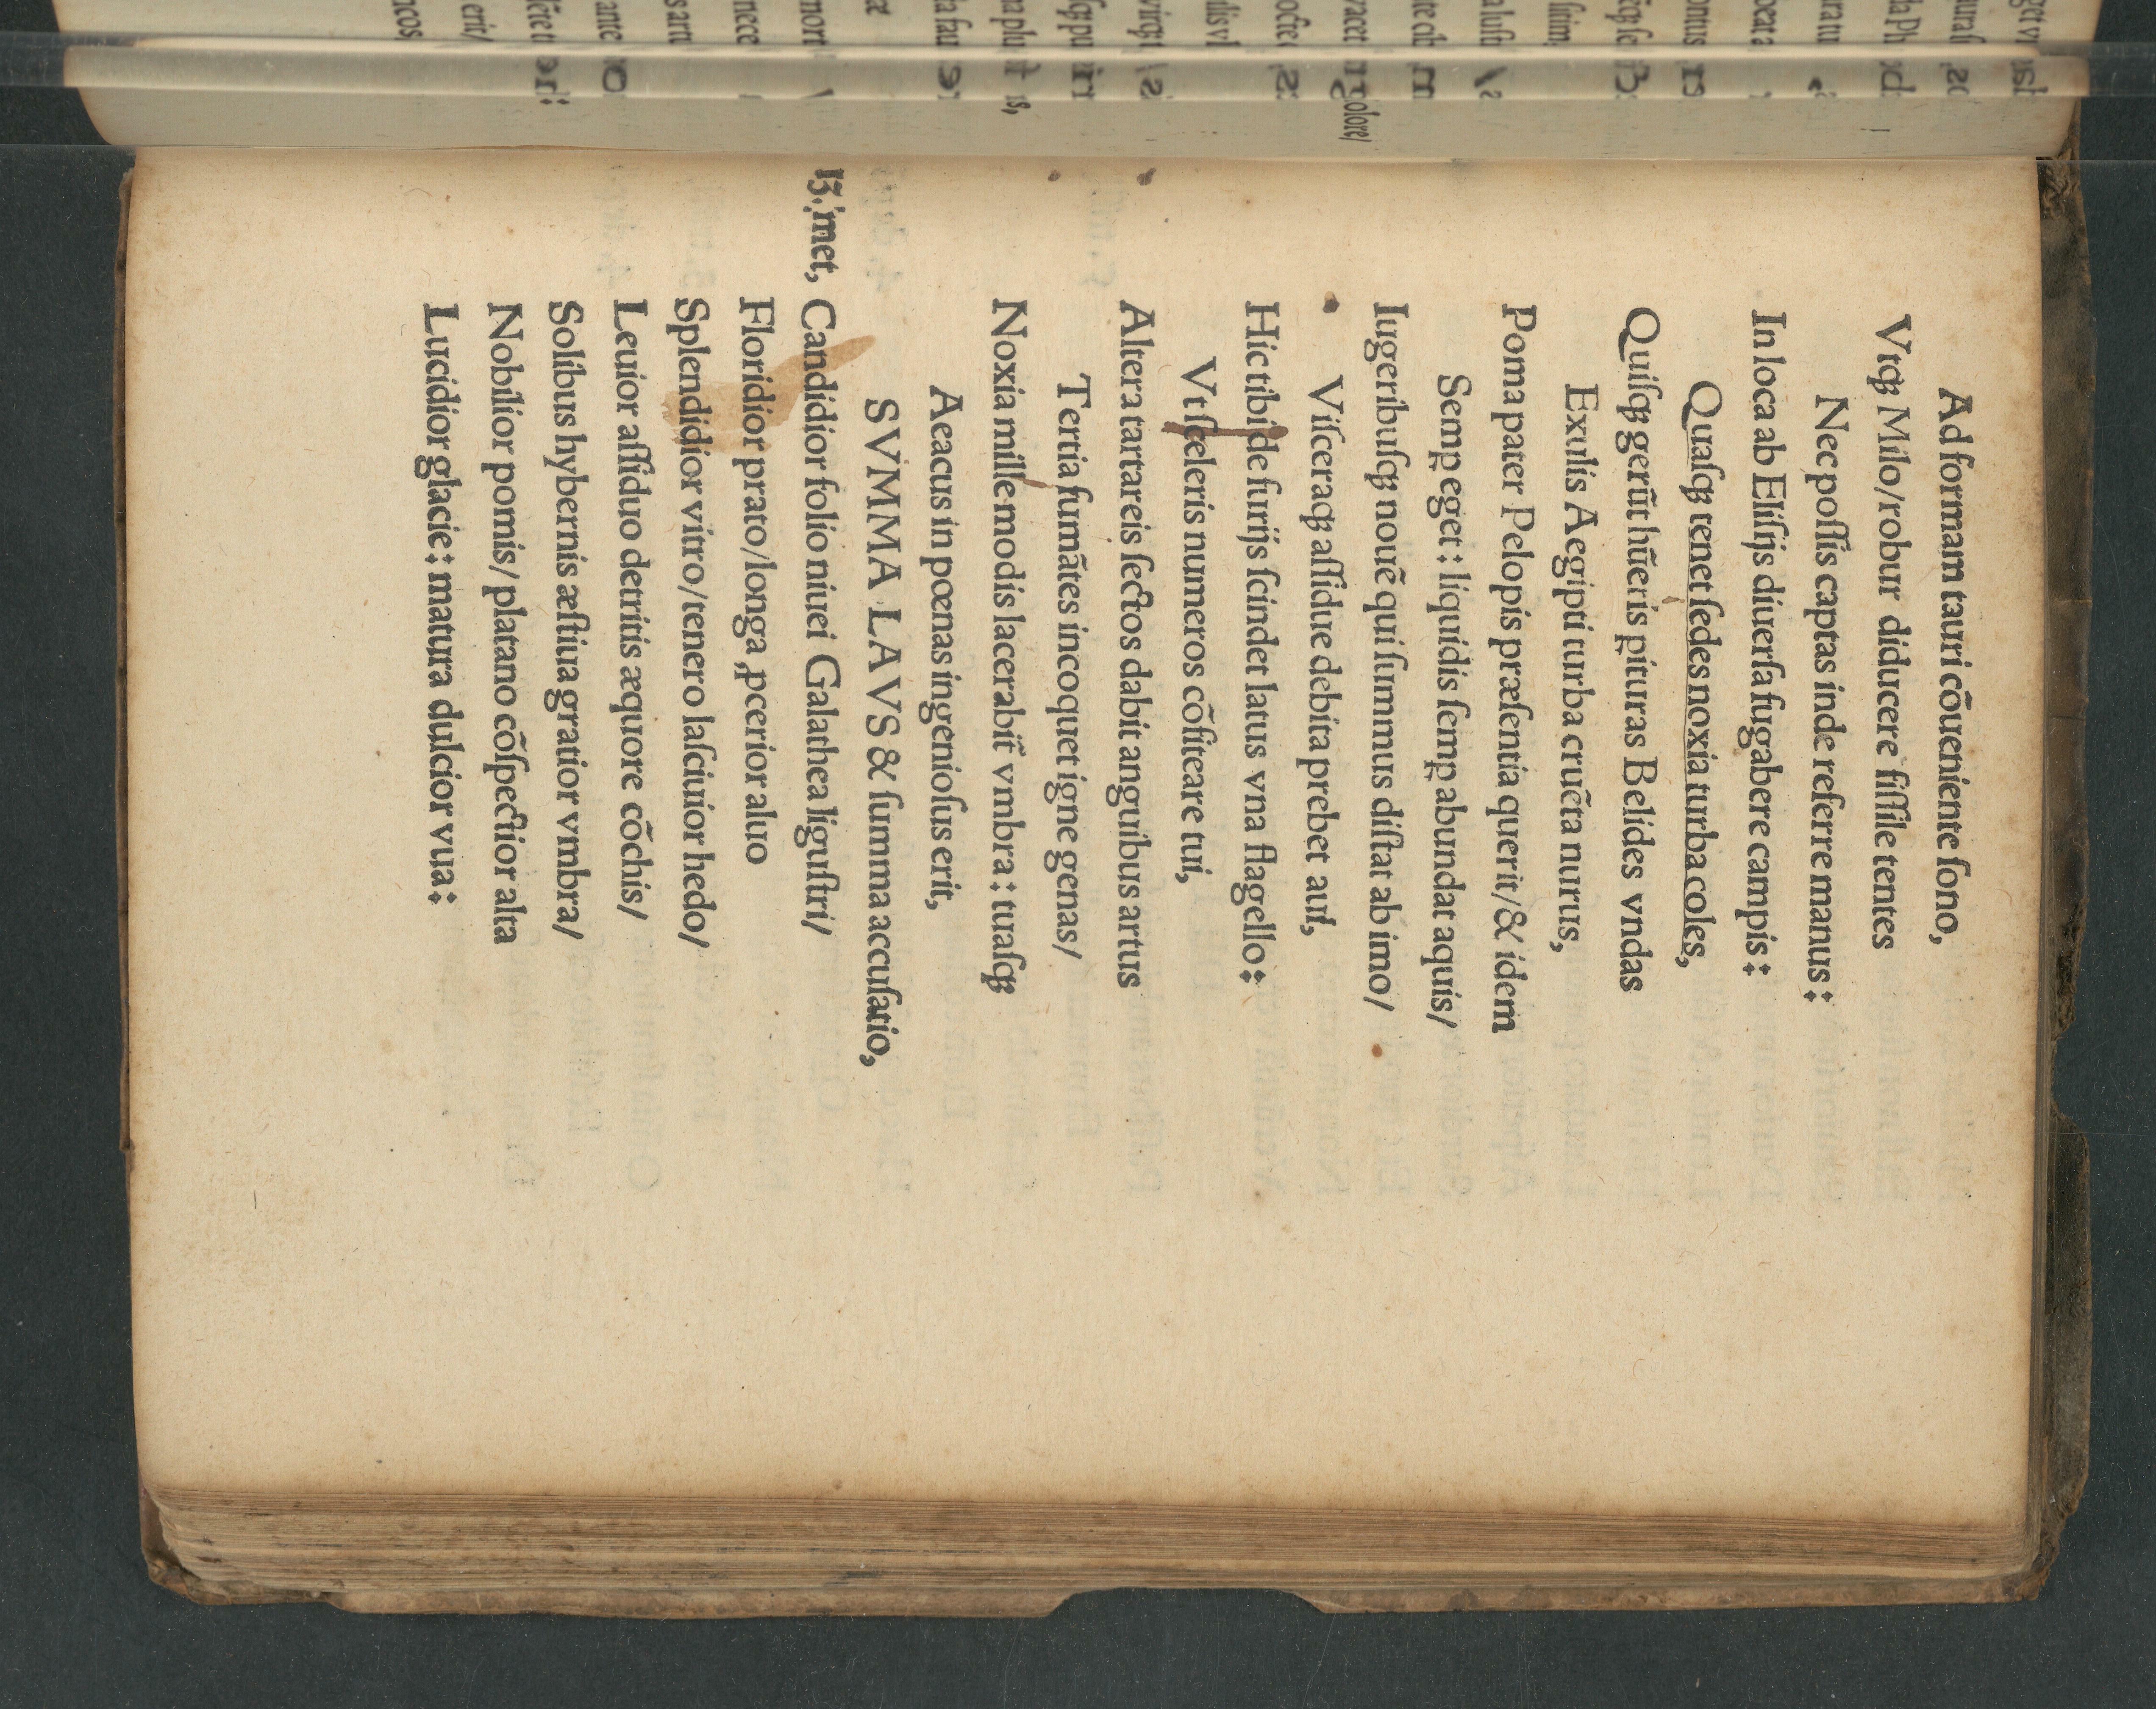 Ad formam tauri cōueniente ſono,
Vtqꝫ Milo/robur diducere fiſſile tentes
Nec poſſis captas inde referre manus:
In loca ab Eliſijs diuerſa fugabere campis:
Quaſqꝫ tenet ſedes noxia turba coles,
Quiſqꝫ gerūt hūeris ꝑituras Belides vndas
Exulis Aegipti turba cruēta nurus,
Poma pater Pelopis præſentia querit/& idem
Semꝑ eget: liquidis ſemꝑ abundat aquis/
Iugeribuſqꝫ nouē qui ſummus diſtat ab imo/
Viſceraqꝫ aſſidue debita prebet aui,
Hic tibi de furijs ſcindet latus vna flagello:
Vt ſceleris numeros cōfiteare tui,
Altera tartareis ſectos dabit anguibus artus
Tertia fumātes incoquet igne genas/
Noxia mille modis lacerabit̄ vmbra: tuaſqꝫ
Aeacus in pœnas ingenioſus erit,
SVMMA LAVS & ſumma accuſatio,
13. met, Candidior folio niuei Galathea liguſtri/
Floridior prato/longa ꝓcerior aluo
Splendidior vitro/tenero laſciuior hedo/
Leuior aſſiduo detritis æquore cōchis/
Solibus hybernis æſtiua gratior vmbra/
Nobilior pomis/platano cōſpectior alta
Lucidior glacie: matura dulcior vua: